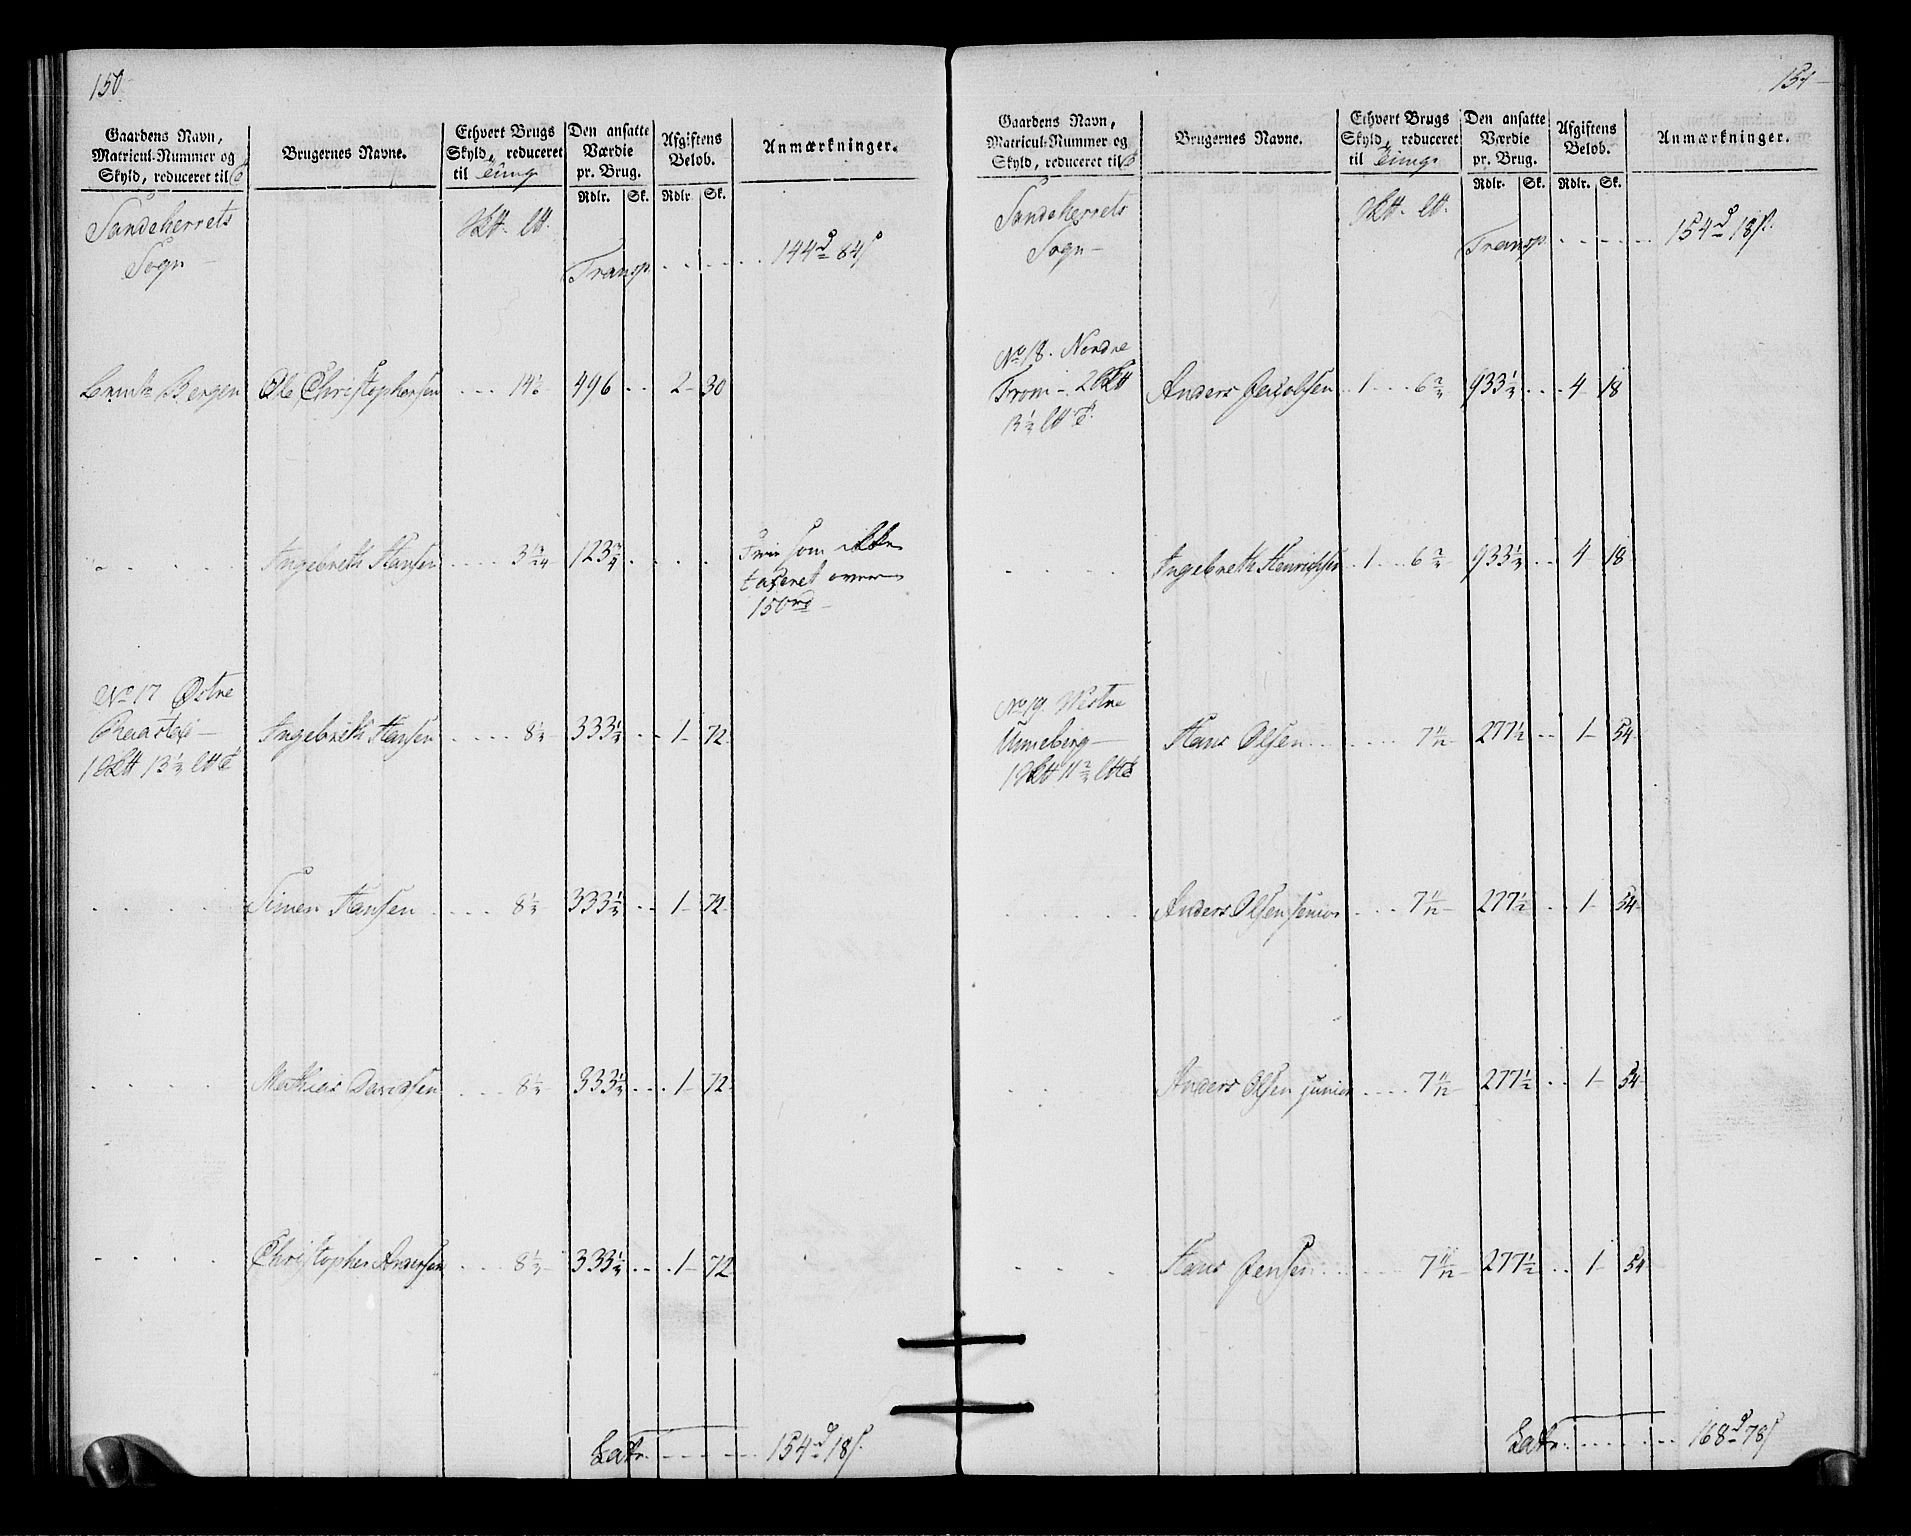 150
Gaardens Navn,
Matricul-Nummer og
Skyld, reduceret til
Brugernes Navne.
Ethvert Brugs
Skyld, reduceret
til Tung
Den ansatte
Værdie
pr. Brug.
Rdlr. Sk.
Afgiftens
Beløb.
Rdlr Sk.
Anmærkninger.
Sandeherrets
Sogn
Transp. 144 84
Bergen Ole Christophersen 14 496 2 30
Ingebreth Hansen 3 123 3/4 Frie som ikke
taxeret over
150 rd
No 17 Østre
13 1/3 Ingebreth Hansen 8 1/3 333 1/3 1 72
Simen Hansen 8 1/3 333 1/3 1 72
Mathias Davidsen 8 1/3 333 1/3 1 72
Christopher Andersen 8 1/3 333 1/3 1 72
Latr. 154 18
151
Gaardens Navn,
Matricul-Nummer og
Skyld, reduceret til
Brugernes Navne.
Ethvert Brugs
Skyld, reduceret
til Tung
Den ansatte
Værdie
pr. Brug.
Rdlr. Sk.
Afgiftens
Beløb.
Rdlr. Sk.
Anmærkninger.
Sandeherrets
Sogn
Transp. 154 18
No 18. Nordre
From 2
13 1/3 Anders Jacobsen 1 6 2/3 933 1/3 4 18
Ingebreth Henrichsen 1 6 2/3 933 1/3 4 18
No 19. Westre
Unneberg
11 2/3 Hans Olsen 7 11/12 277 1/2 1 54
Anders Olsen senior 7 11/12 277 1/2 1 54
Anders Olsen junior 7 11/12 277 1/2 1 54
Hans Jensen 7 11/12 277 1/2 1 54
Latr. 168 78